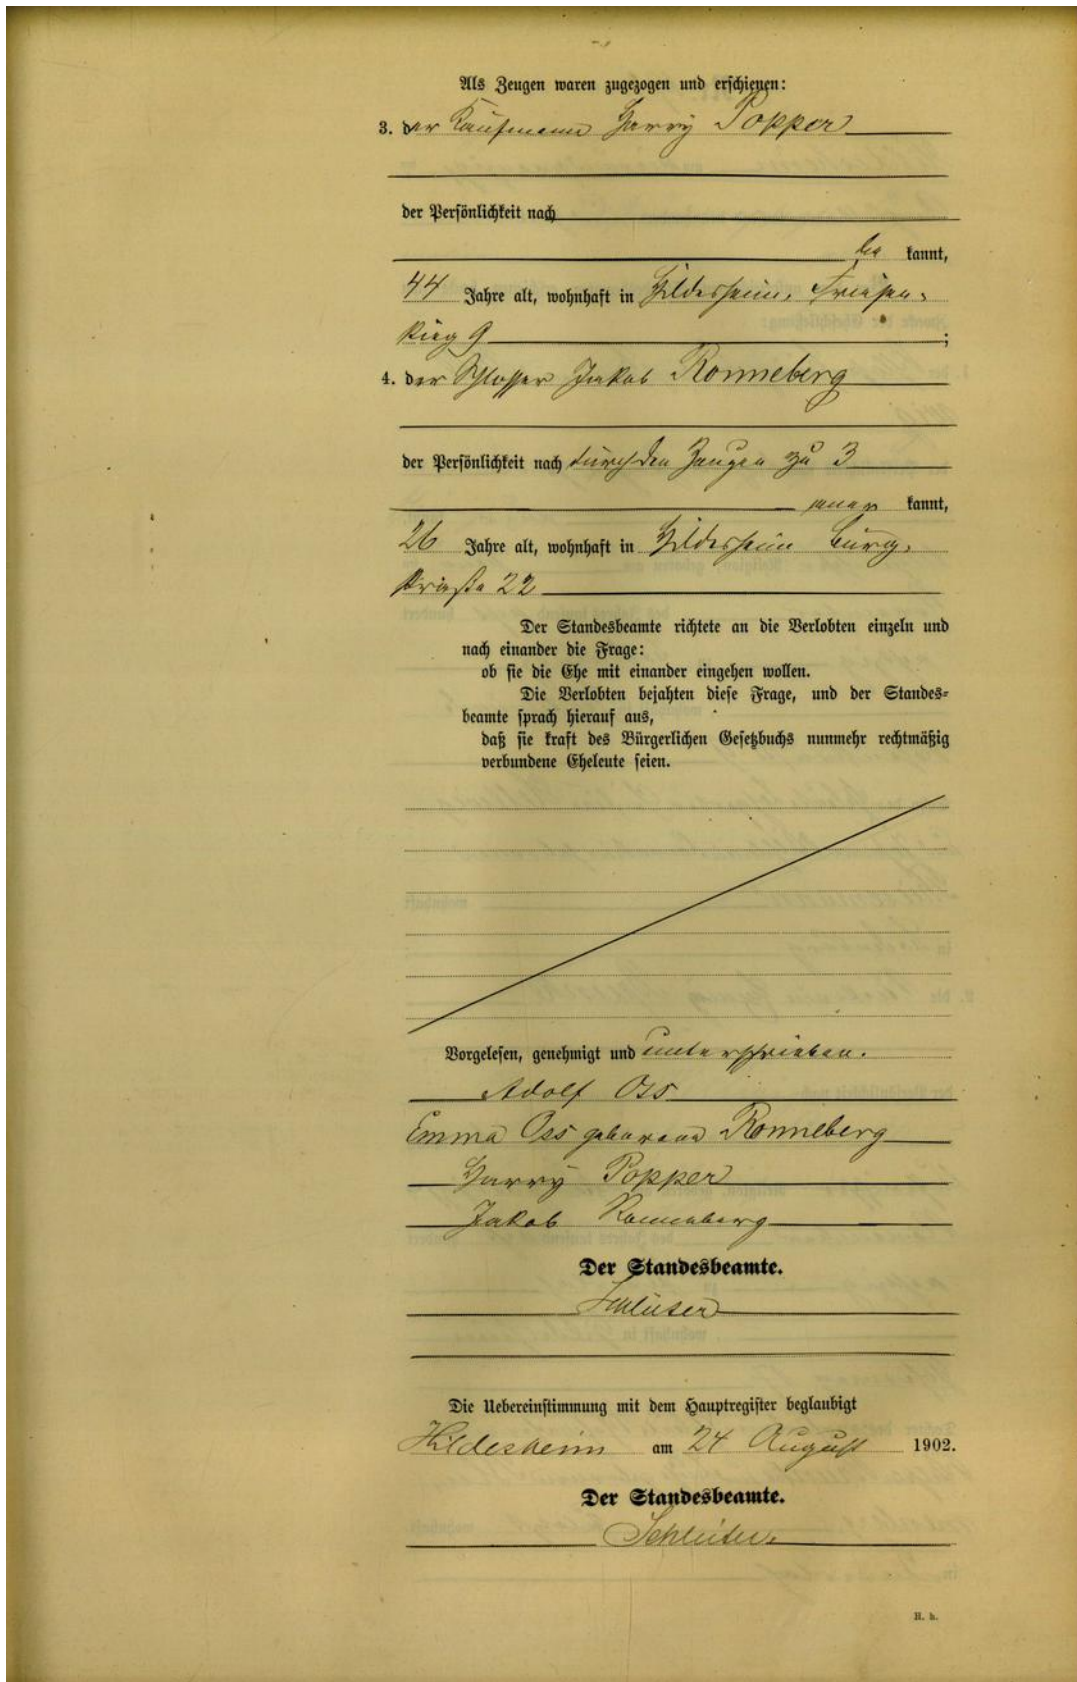 Als Zeugen waren zugezogen und erschienen:
3. der Kaufmann Harry Popper
der Persönlichkeit nach
be kannt,
44 Jahre alt, wohnhaft in Hildesheim, Friesen-
stieg 9;
4. der Schlosser Jakob Ronneberg
der Persönlichkeit nach durch den Zeugen zu 3
aner kannt,
26 Jahre alt, wohnhaft in Hildesheim Burg-
straße 22
Der Standesbeamte richtete an die Verlobten einzeln und
nach einander die Frage:
ob sie die Ehe mit einander eingehen wollen.
Die Verlobten bejahten diese Frage, und der Standes-
beamte sprach hierauf aus,
daß sie kraft des Bürgerlichen Gesetzbuchs nunmehr rechtmäßig
verbundene Eheleute seien.
Vorgelesen, genehmigt und unterschrieben.
Adolf Oss
Emma Oss geborene Ronneberg
Harry Popper
Jakob Ronneberg
Der Standesbeamte.
Die Uebereinstimmung mit dem Hauptregister beglaubigt
Hildesheim am 24 August 1902.
Der Standesbeamte.
H. h.